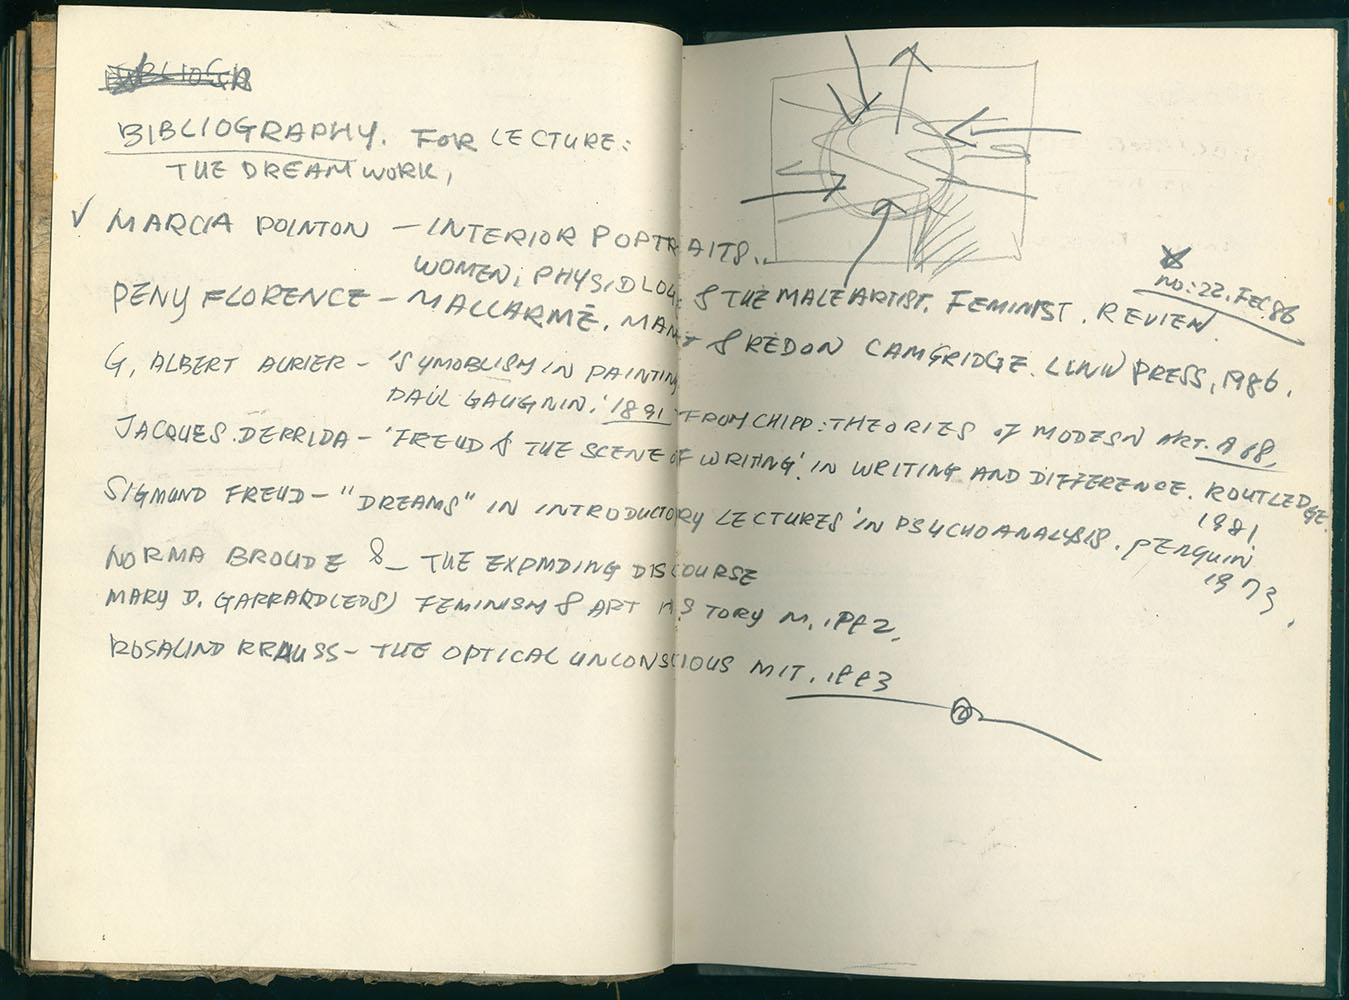 BIBLIOGR
BIBLIOGRAPHY. FOR LECTURE:
THE DREAMWORK,
✓ MARCIA POINTON – INTERIOR PORTRAITS..
WOMEN, PHYSIOLOGY & THE MALE ARTIST. FEMINIST. REVIEW
no: 22. FEB. 86
PENY FLORENCE – MALLARMÉ. MANET & REDON CAMGRIDGE. UNIV PRESS, 1986.
G, ALBERT AURIER – 'SYMOBLISM IN PAINTING
PAUL GAUGNIN.' 1891 FROM CHIPP: THEORIES of MODERN ART. A 68,
JACQUES. DERRIDA – 'FREUD & THE SCENE OF WRITING'. IN WRITING AND DIFFERENCE. ROUTLEDGE.
1981
SIGMUND FREUD – "DREAMS" IN INTRODUCTORY LECTURES IN PSYCHOANALYSIS. PENQUIN
1973.
NORMA BROUDE & – THE EXPANDING DISCOURSE
MARY D. GARRARD (EDS) FEMINISM & ART HISTORY N. 1992.
ROSALIND KRAUSS – THE OPTICAL UNCONSCIOUS MIT. 1993